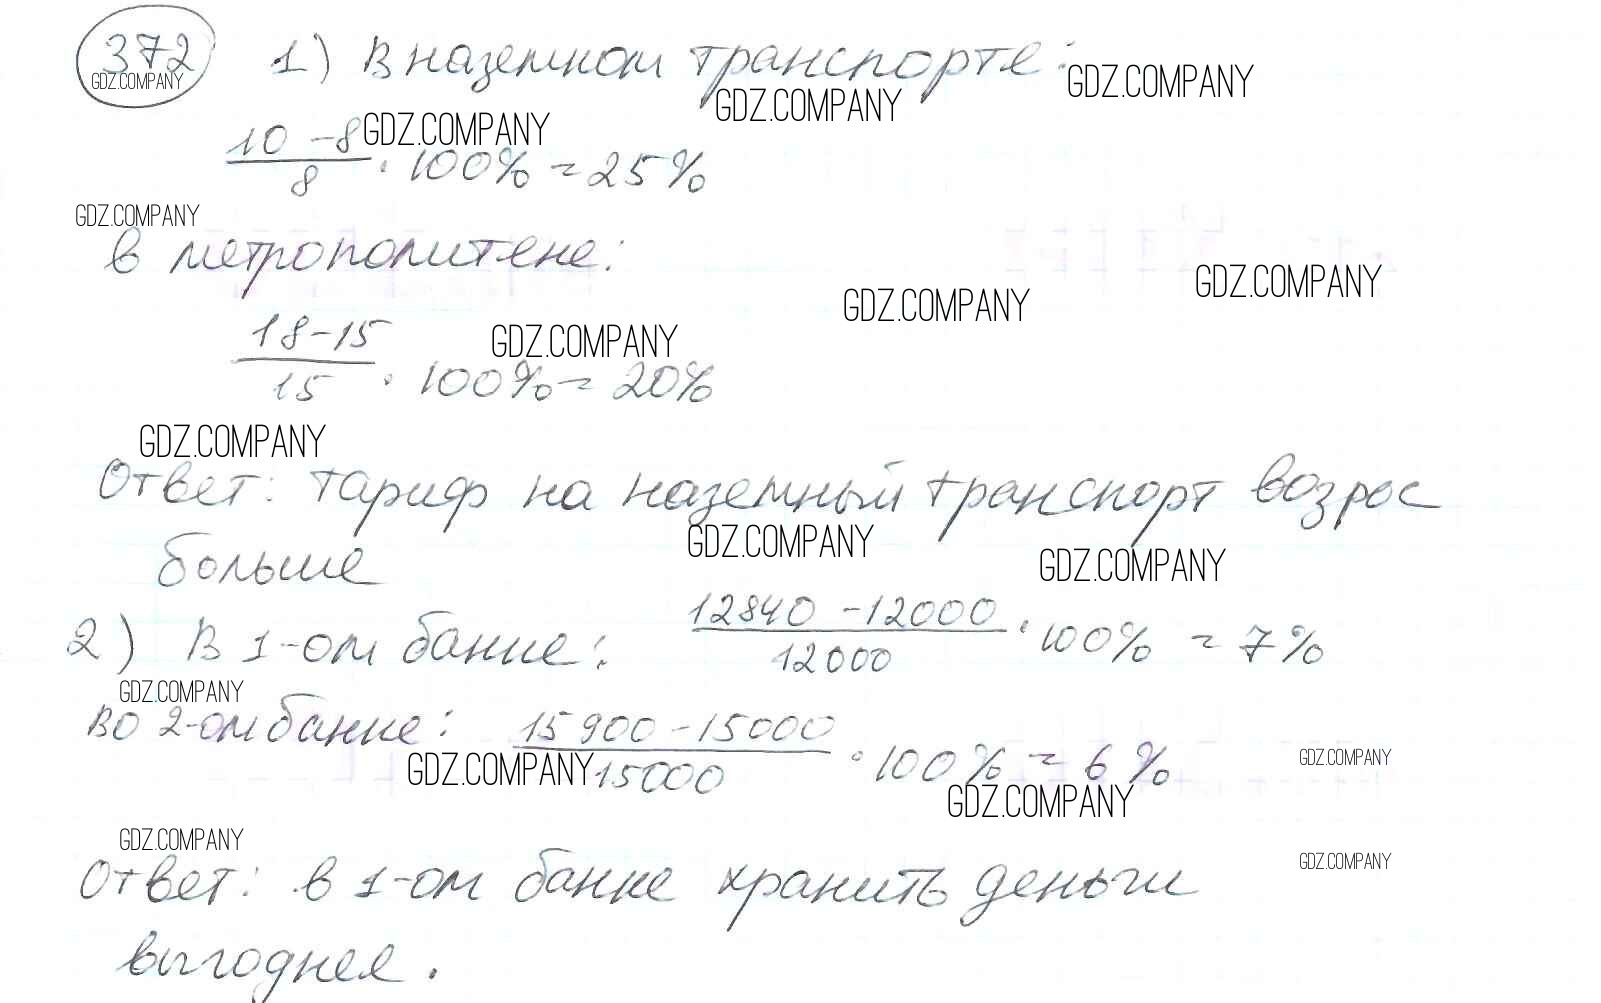 372 1) В наземном транспорте:
GDZ.COMPANY GDZ.COMPANY GDZ.COMPANY
10 - 8 GDZ.COMPANY
8 · 100% = 25%
GDZ.COMPANY
в метрополитене:
GDZ.COMPANY GDZ.COMPANY
18 - 15 GDZ.COMPANY
15 · 100% = 20%
GDZ.COMPANY
Ответ: тариф на наземный транспорт возрос
GDZ.COMPANY GDZ.COMPANY
больше
2) В 1-ом банке: 12840 - 12000
12000 · 100% = 7%
GDZ.COMPANY
во 2-ом банке: 15900 - 15000
GDZ.COMPANY 15000 · 100% = 6% GDZ.COMPANY
GDZ.COMPANY
GDZ.COMPANY GDZ.COMPANY
Ответ: в 1-ом банке хранить деньги
выгоднее.